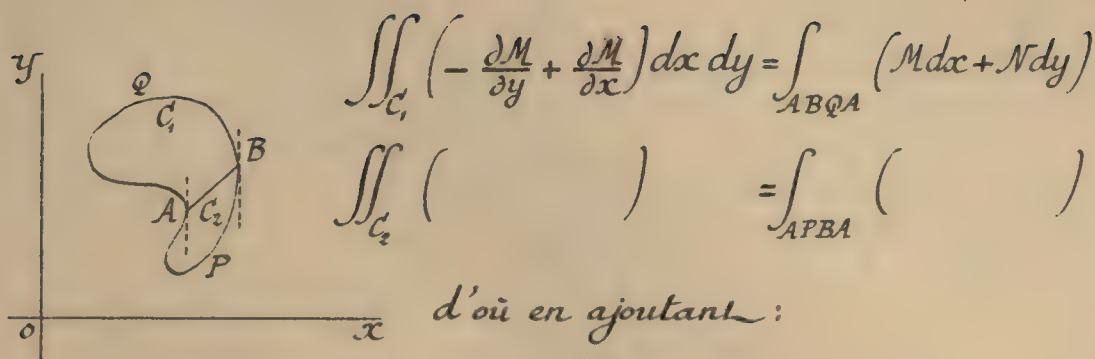 y
Q
C₁
B
A
C₂
P
o
x
∬_{C₁} (− ∂M/∂y + ∂M/∂x) dx dy = ∫_{ABQA} (Mdx + Ndy)
∬_{C₂} ( ) = ∫_{APBA} ( )
d'où en ajoutant :